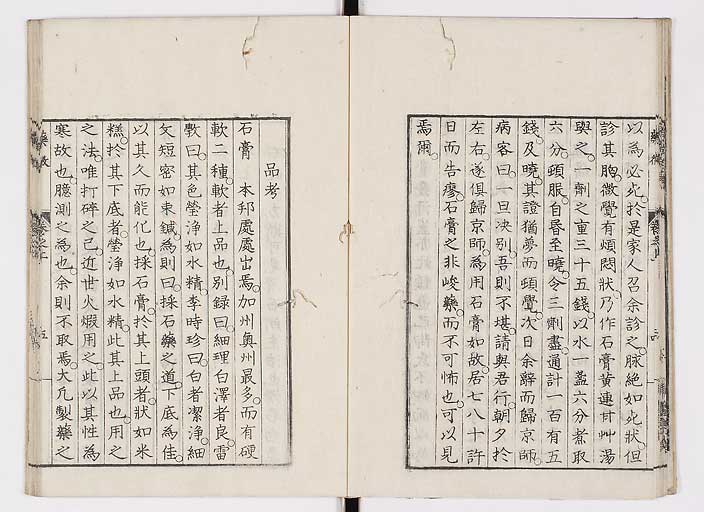 以爲必死於是家人召余診之脉絶如死狀但
診其胸微覺有煩悶狀乃作石膏黄連甘艸湯
與之一劑之重三十五錢以水一盞六分煮取
六分頓服自昏至曉令三劑盡通計一百有五
錢及曉其證猶夢而頓覺次日余辭而歸京師
病客曰一旦决別吾則不堪請與君行朝夕於
左右遂俱歸京師爲用石膏如故居七八十許
日而告瘳石膏之非峻藥而不可怖也可以見
焉爾
品考
石膏 本邦處處出焉加州奧州最多而有硬
軟二種軟者上品也別錄曰細理白澤者良雷
斅曰其色瑩淨如水精李時珍曰白者潔淨細
文短密如束鍼爲則曰採石藥之道下底爲佳
以其久而能化也採石膏於其上頭者狀如米
糕於其下底者瑩淨如水精此其上品也用之
之法唯打碎之已近世火煆用之此以其性爲
寒故也臆測之爲也余則不取焉大凡製藥之